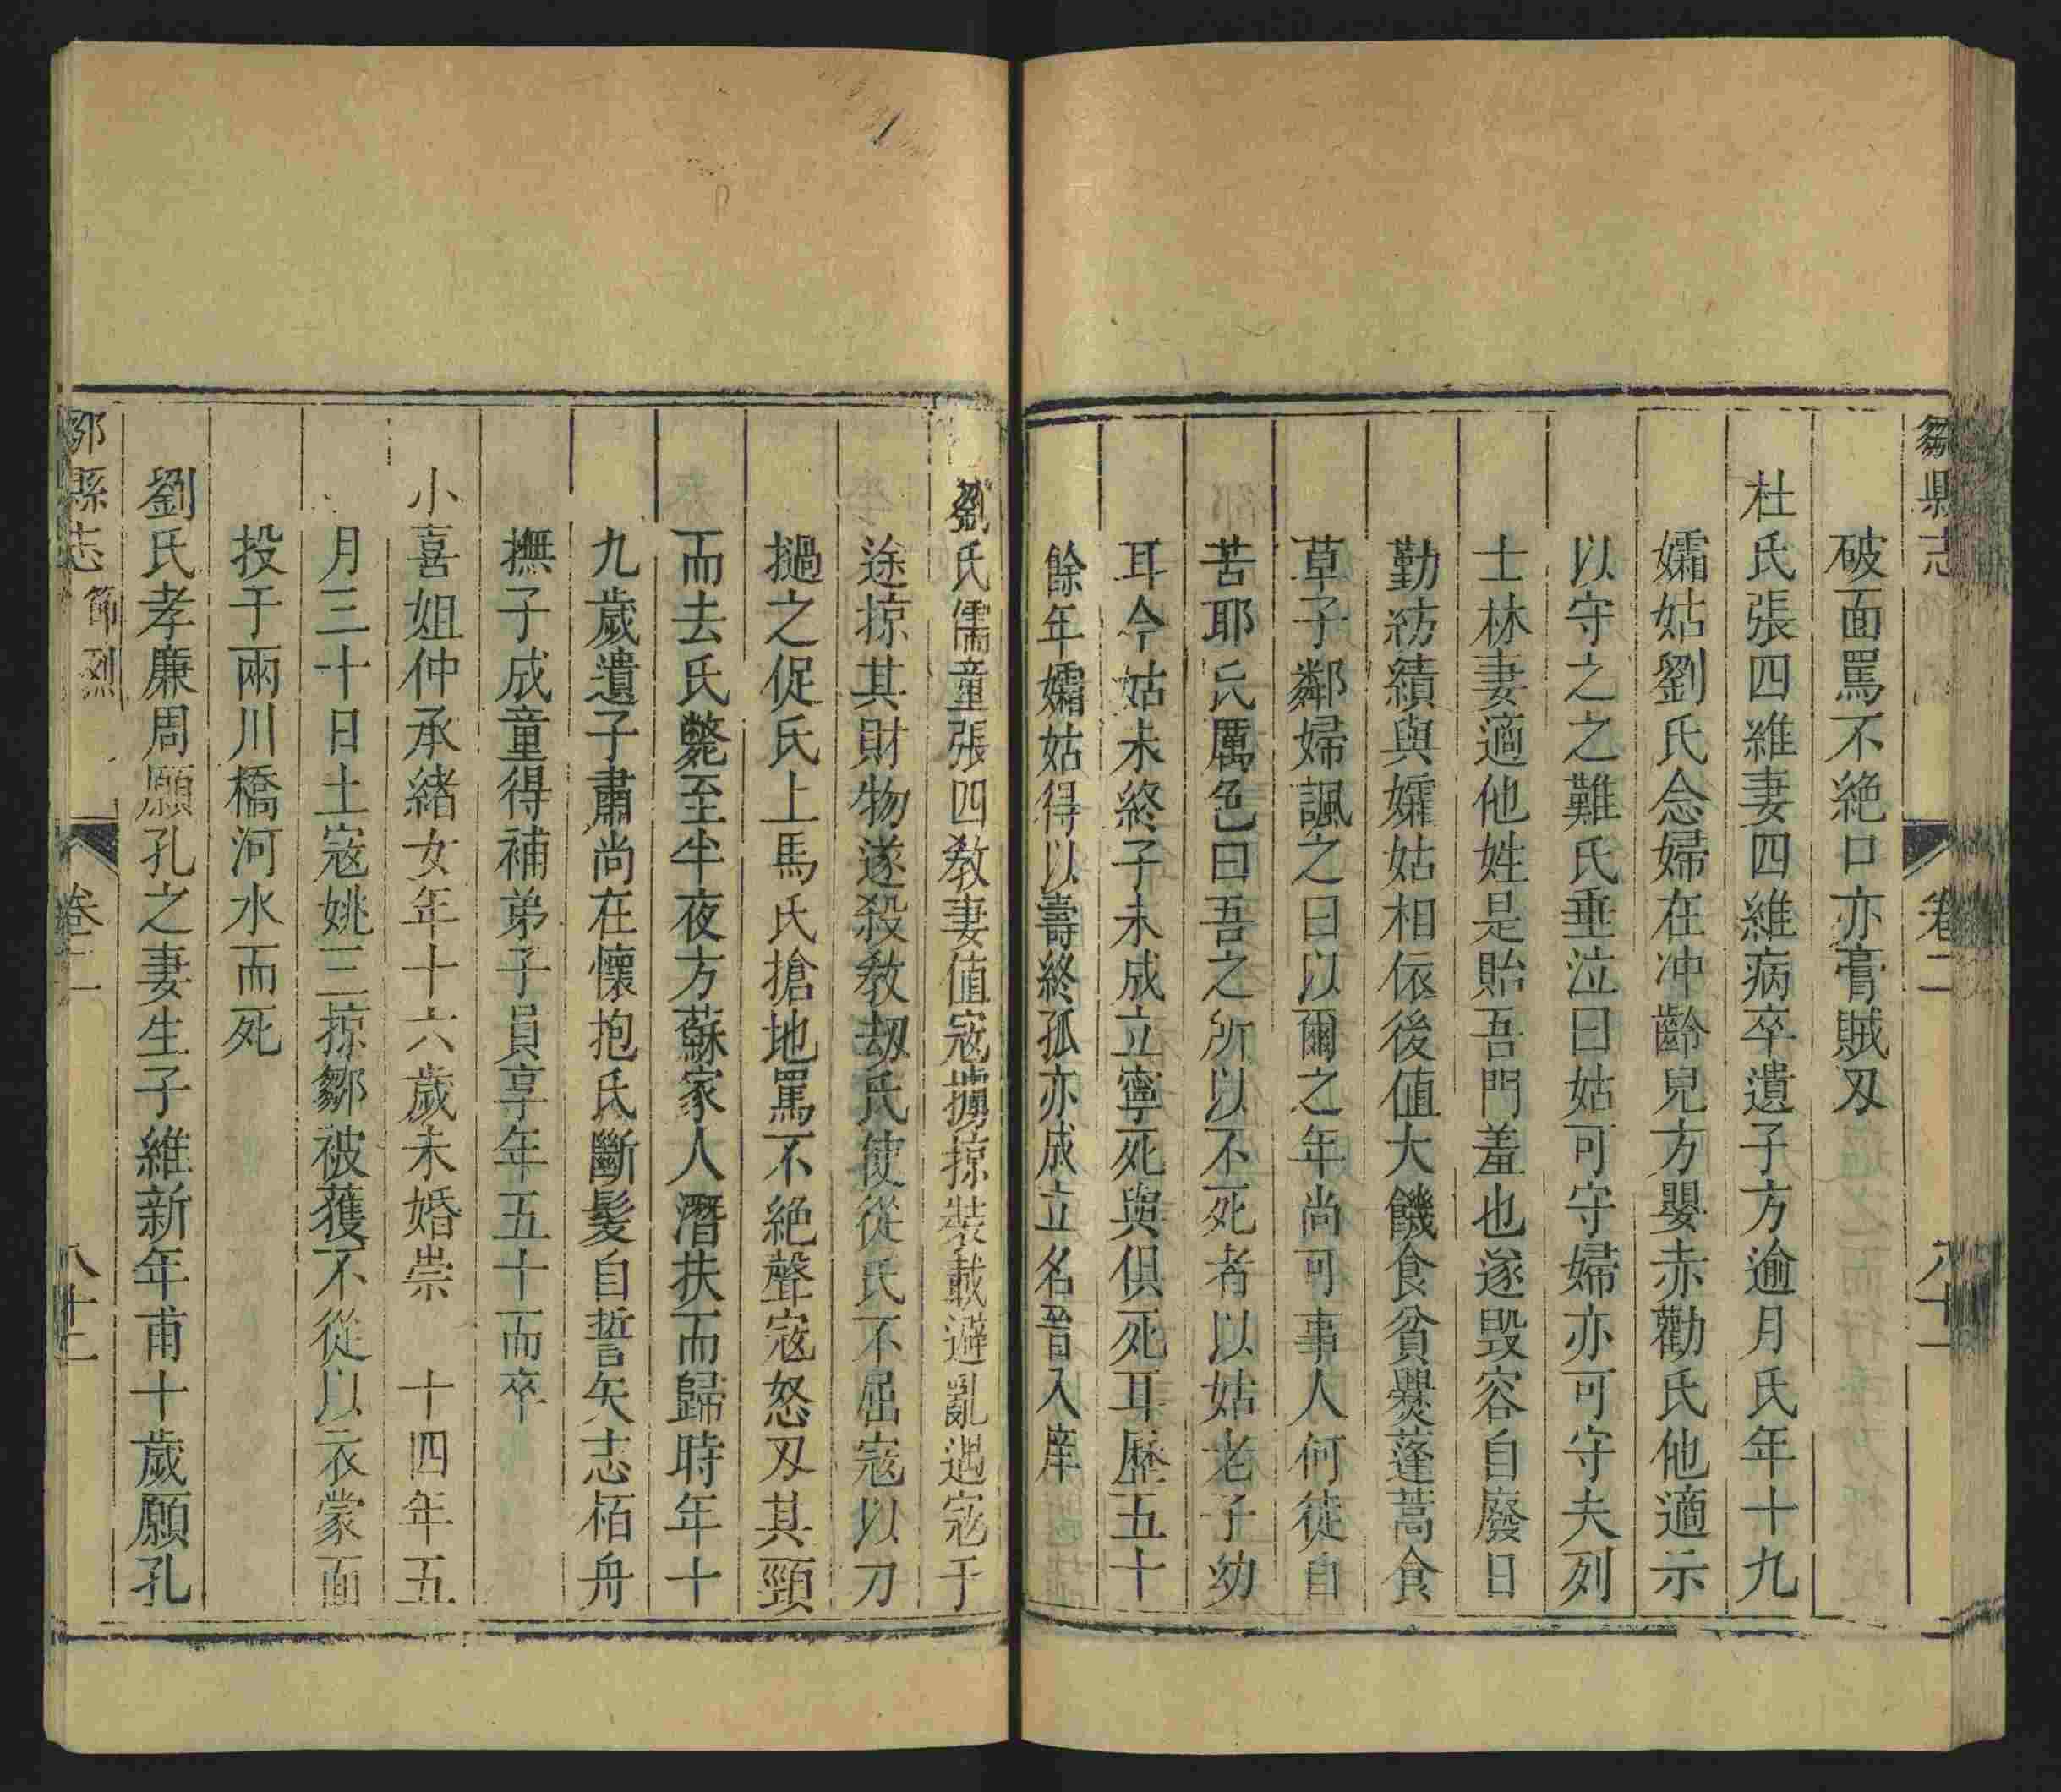 鄒縣志 卷二 八十一
破面罵不絕口亦膏賊刄
杜氏張四維妻四維病卒遺子方逾月氏年十九
孀姑劉氏念婦在冲齡兒方嬰赤勸氏他適示
以守之之難氏垂泣曰姑可守婦亦可守夫列
士林妻適他姓是貽吾門羞也遂毀容自廢日
勤紡績與孀姑相依後值大饑食貧爨蓬蒿食
草子鄰婦諷之曰以爾之年尚可事人何徒自
苦耶氏厲色曰吾之所以不死者以姑老子幼
耳今姑未終子未成立寧死與俱死耳歷五十
餘年孀姑得以壽終孤亦成立名晉入庠
劉氏儒童張四教妻值寇擄掠裝載避亂遇寇于
途掠其財物遂殺教刼氏使從氏不屈寇以刀
撾之促氏上馬氏搶地罵不絕聲寇怒刄其頸
而去氏斃至半夜方蘇家人潛扶而歸時年十
九歲遺子肅尚在懷抱氏斷髮自誓矢志栢舟
撫子成童得補弟子員享年五十而卒
小喜姐仲承緒女年十六歲未婚崇 十四年五
月三十日土寇姚三掠鄒被獲不從以衣蒙面
投于兩川橋河水而死
劉氏孝廉周願孔之妻生子維新年甫十歲願孔
鄒縣志 節烈 卷二 八十二